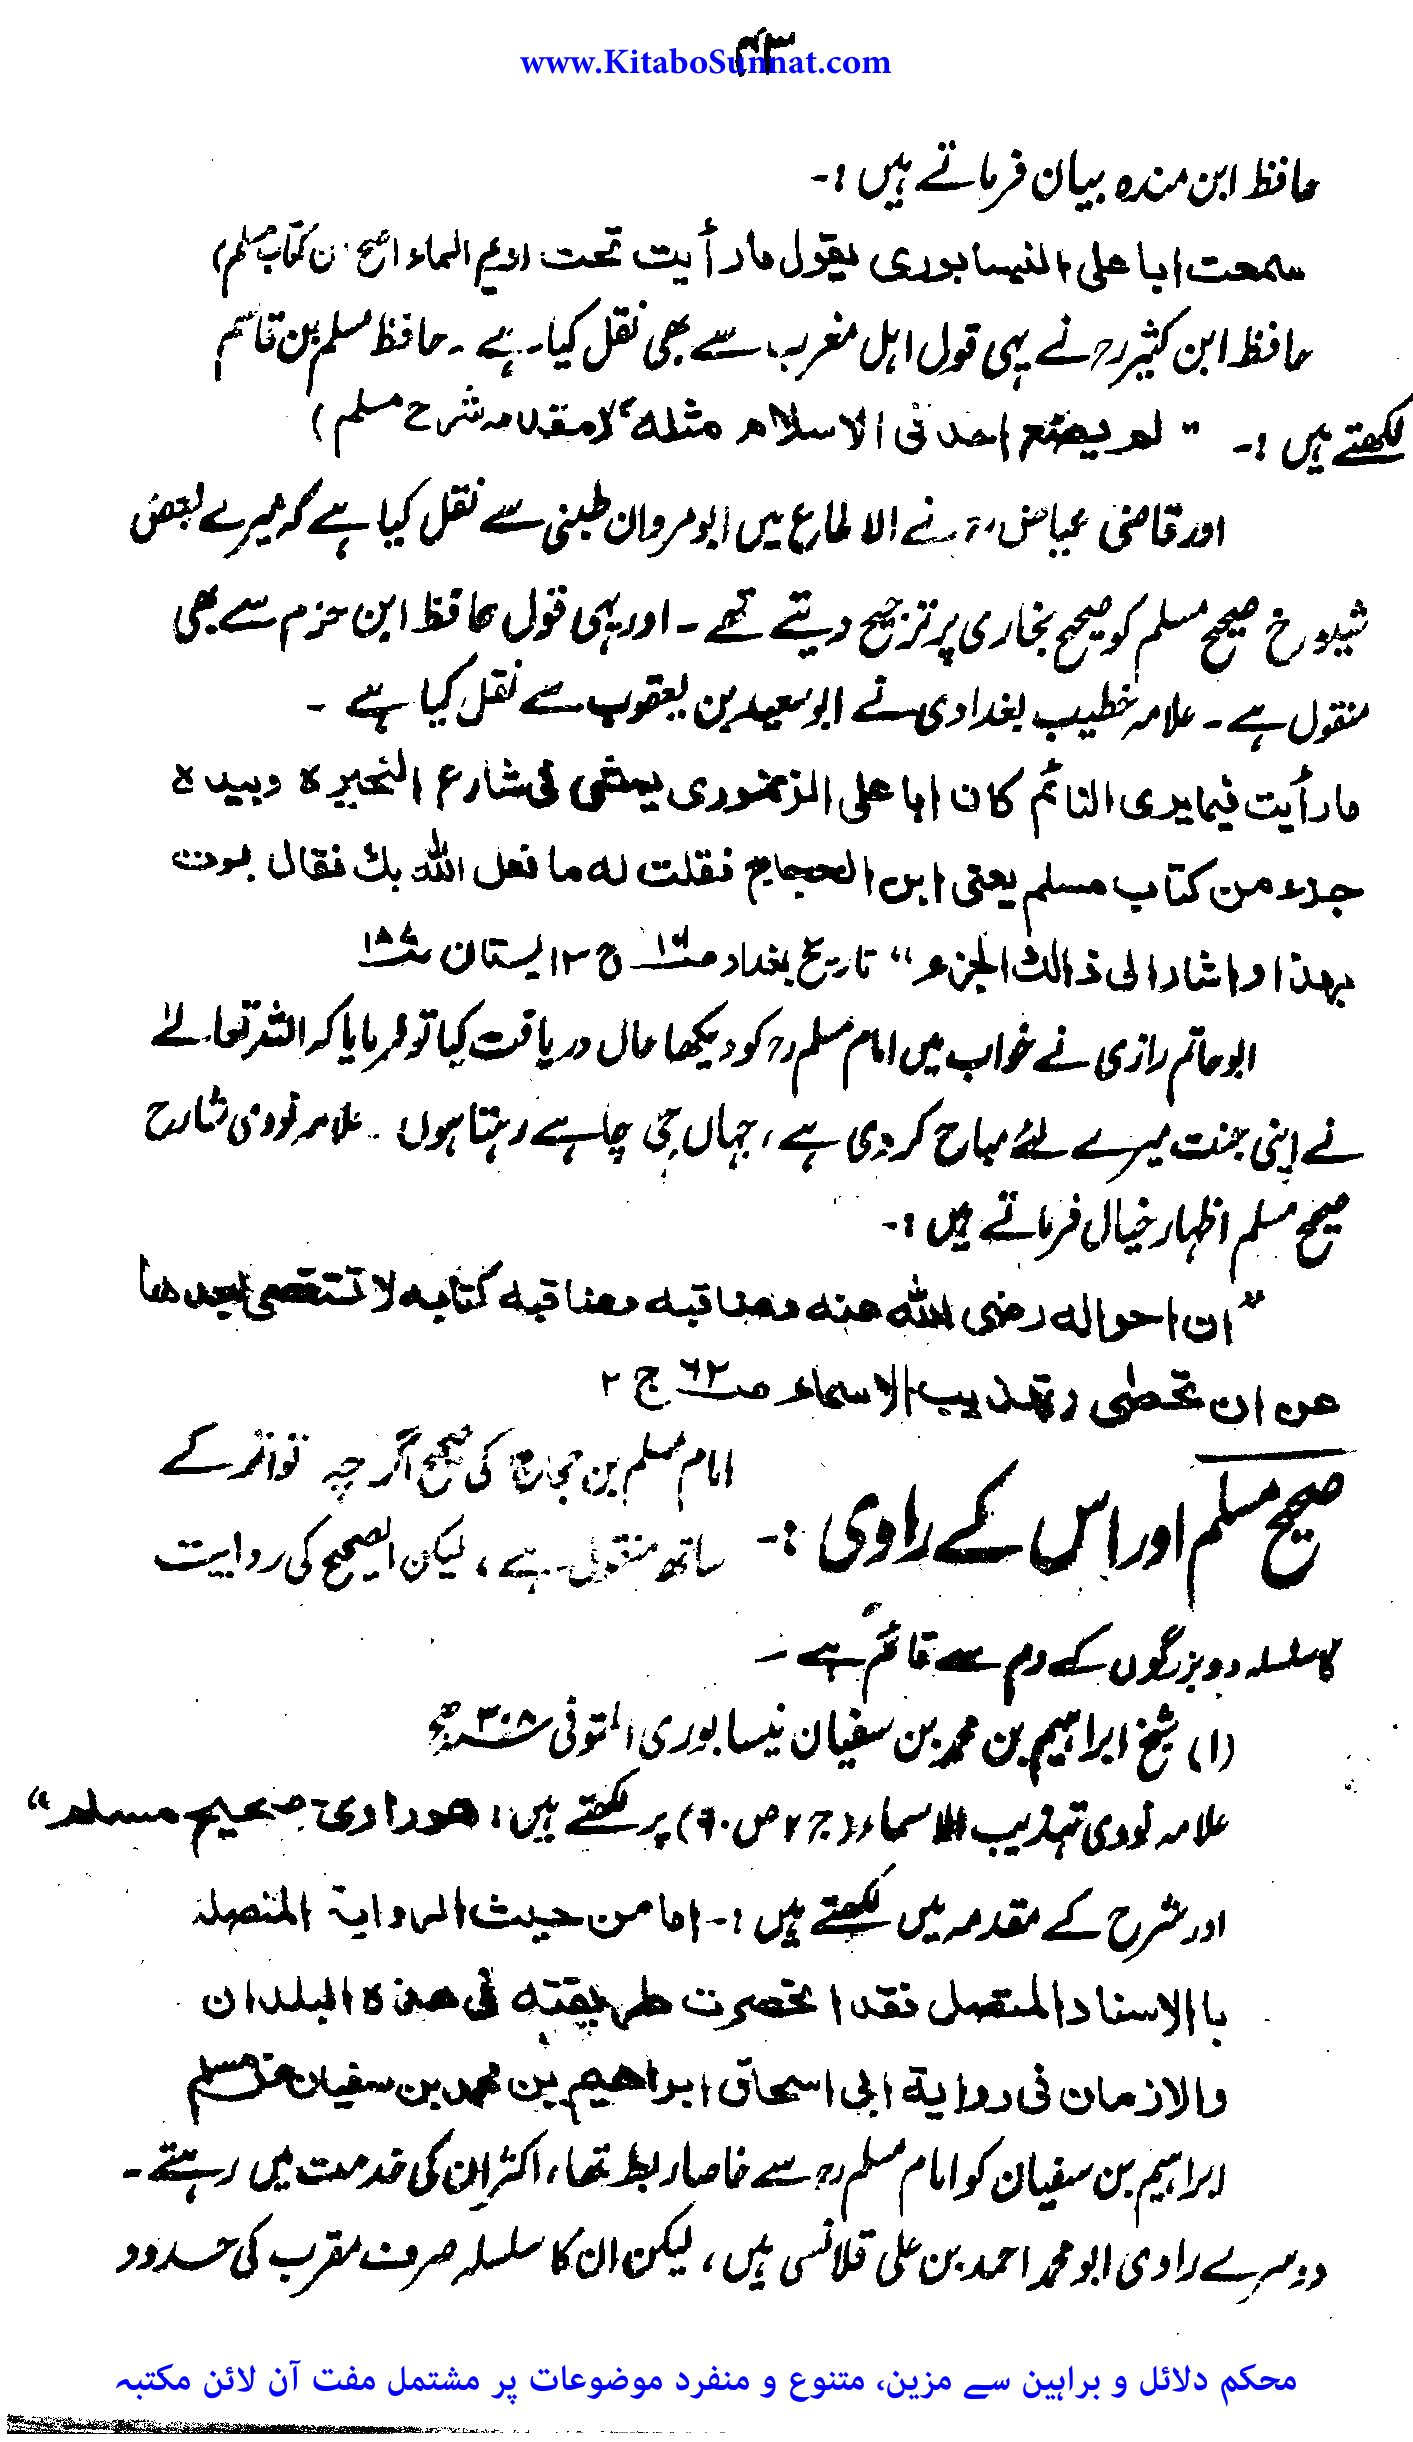 ۴۳
www.KitaboSunnat.com
حافظ ابن مندہ بیان فرماتے ہیں :۔
سمعت ابا علی النیسابوری یقول مارأیت تحت ادیم السماء اصح من کتاب مسلم)
حافظ ابن کثیرؒ نے یہی قول اہل مغرب سے بھی نقل کیا ہے ۔ حافظ مسلم بن قاسم
لکھتے ہیں :۔ " لم یصنع احد فی الاسلام مثلہ" (مقدمہ شرح مسلم)
اور قاضی عیاضؒ نے الالماع میں ابومروان طبنی سے نقل کیا ہے کہ میرے بعض
شیوخ صحیح مسلم کو صحیح بخاری پر ترجیح دیتے تھے ۔ اور یہی قول حافظ ابن حزم سے بھی
منقول ہے ۔ علامہ خطیب بغدادی نے ابوسعید بن یعقوب سے نقل کیا ہے ۔
مارأیت فیما یری النائم کان ابا علی الزغوری یمشی فی شارع الحیرہ وبیدہ
جزء من کتاب مسلم یعنی ابن الحجاج فقلت لہ ما فعل اللہ بک فقال بوت
بہذا واشار الی ذالک الجزء" تاریخ بغداد ج ۱۳ بستان
ابوحاتم رازی نے خواب میں امام مسلمؒ کو دیکھا حال دریافت کیا تو فرمایا کہ اللہ تعالےٰ
نے اپنی جنت میرے لئے مباح کر دی ہے ، جہاں جی چاہے رہتا ہوں ۔ علامہ نووی شارح
صحیح مسلم اظہار خیال فرماتے ہیں :۔
"ان احوالہ رضی اللہ عنہ ومناقبہ ومناقبہ کتابہ لا تستقصی لبعدھا
عن ان تحصی (تہذیب الاسماء ص ۶۲ ج ۲
صحیح مسلم اور اس کے راوی :۔ امام مسلم بن حجاج کی صحیح اگرچہ تواتر کے
ساتھ منقول ہے ، لیکن الصحیح کی روایت
کا سلسلہ دو بزرگوں کے دم سے قائم ہے ۔
(۱) شیخ ابراہیم بن محمد بن سفیان نیسابوری المتوفی ۳۰۸ھ
علامہ نووی تہذیب الاسماء (ج ۲ ص ۹۰) پر لکھتے ہیں : ھو راوی صحیح مسلم"
اور شرح کے مقدمہ میں لکھتے ہیں :۔ اما من حیث الروایۃ المتصلہ
باالاسناد المتصل فقد انحصرت طریقتہ فی ھذہ البلدان
والازمان فی روایۃ ابی اسحاق ابراھیم بن محمد بن سفیان عن مسلم
ابراہیم بن سفیان کو امام مسلمؒ سے خاصا ربط تھا ، اکثر ان کی خدمت میں رہتے ۔
دوسرے راوی ابو محمد احمد بن علی قلانسی ہیں ، لیکن ان کا سلسلہ صرف مغرب کی حدود
محکم دلائل و براہین سے مزین، متنوع و منفرد موضوعات پر مشتمل مفت آن لائن مکتبہ